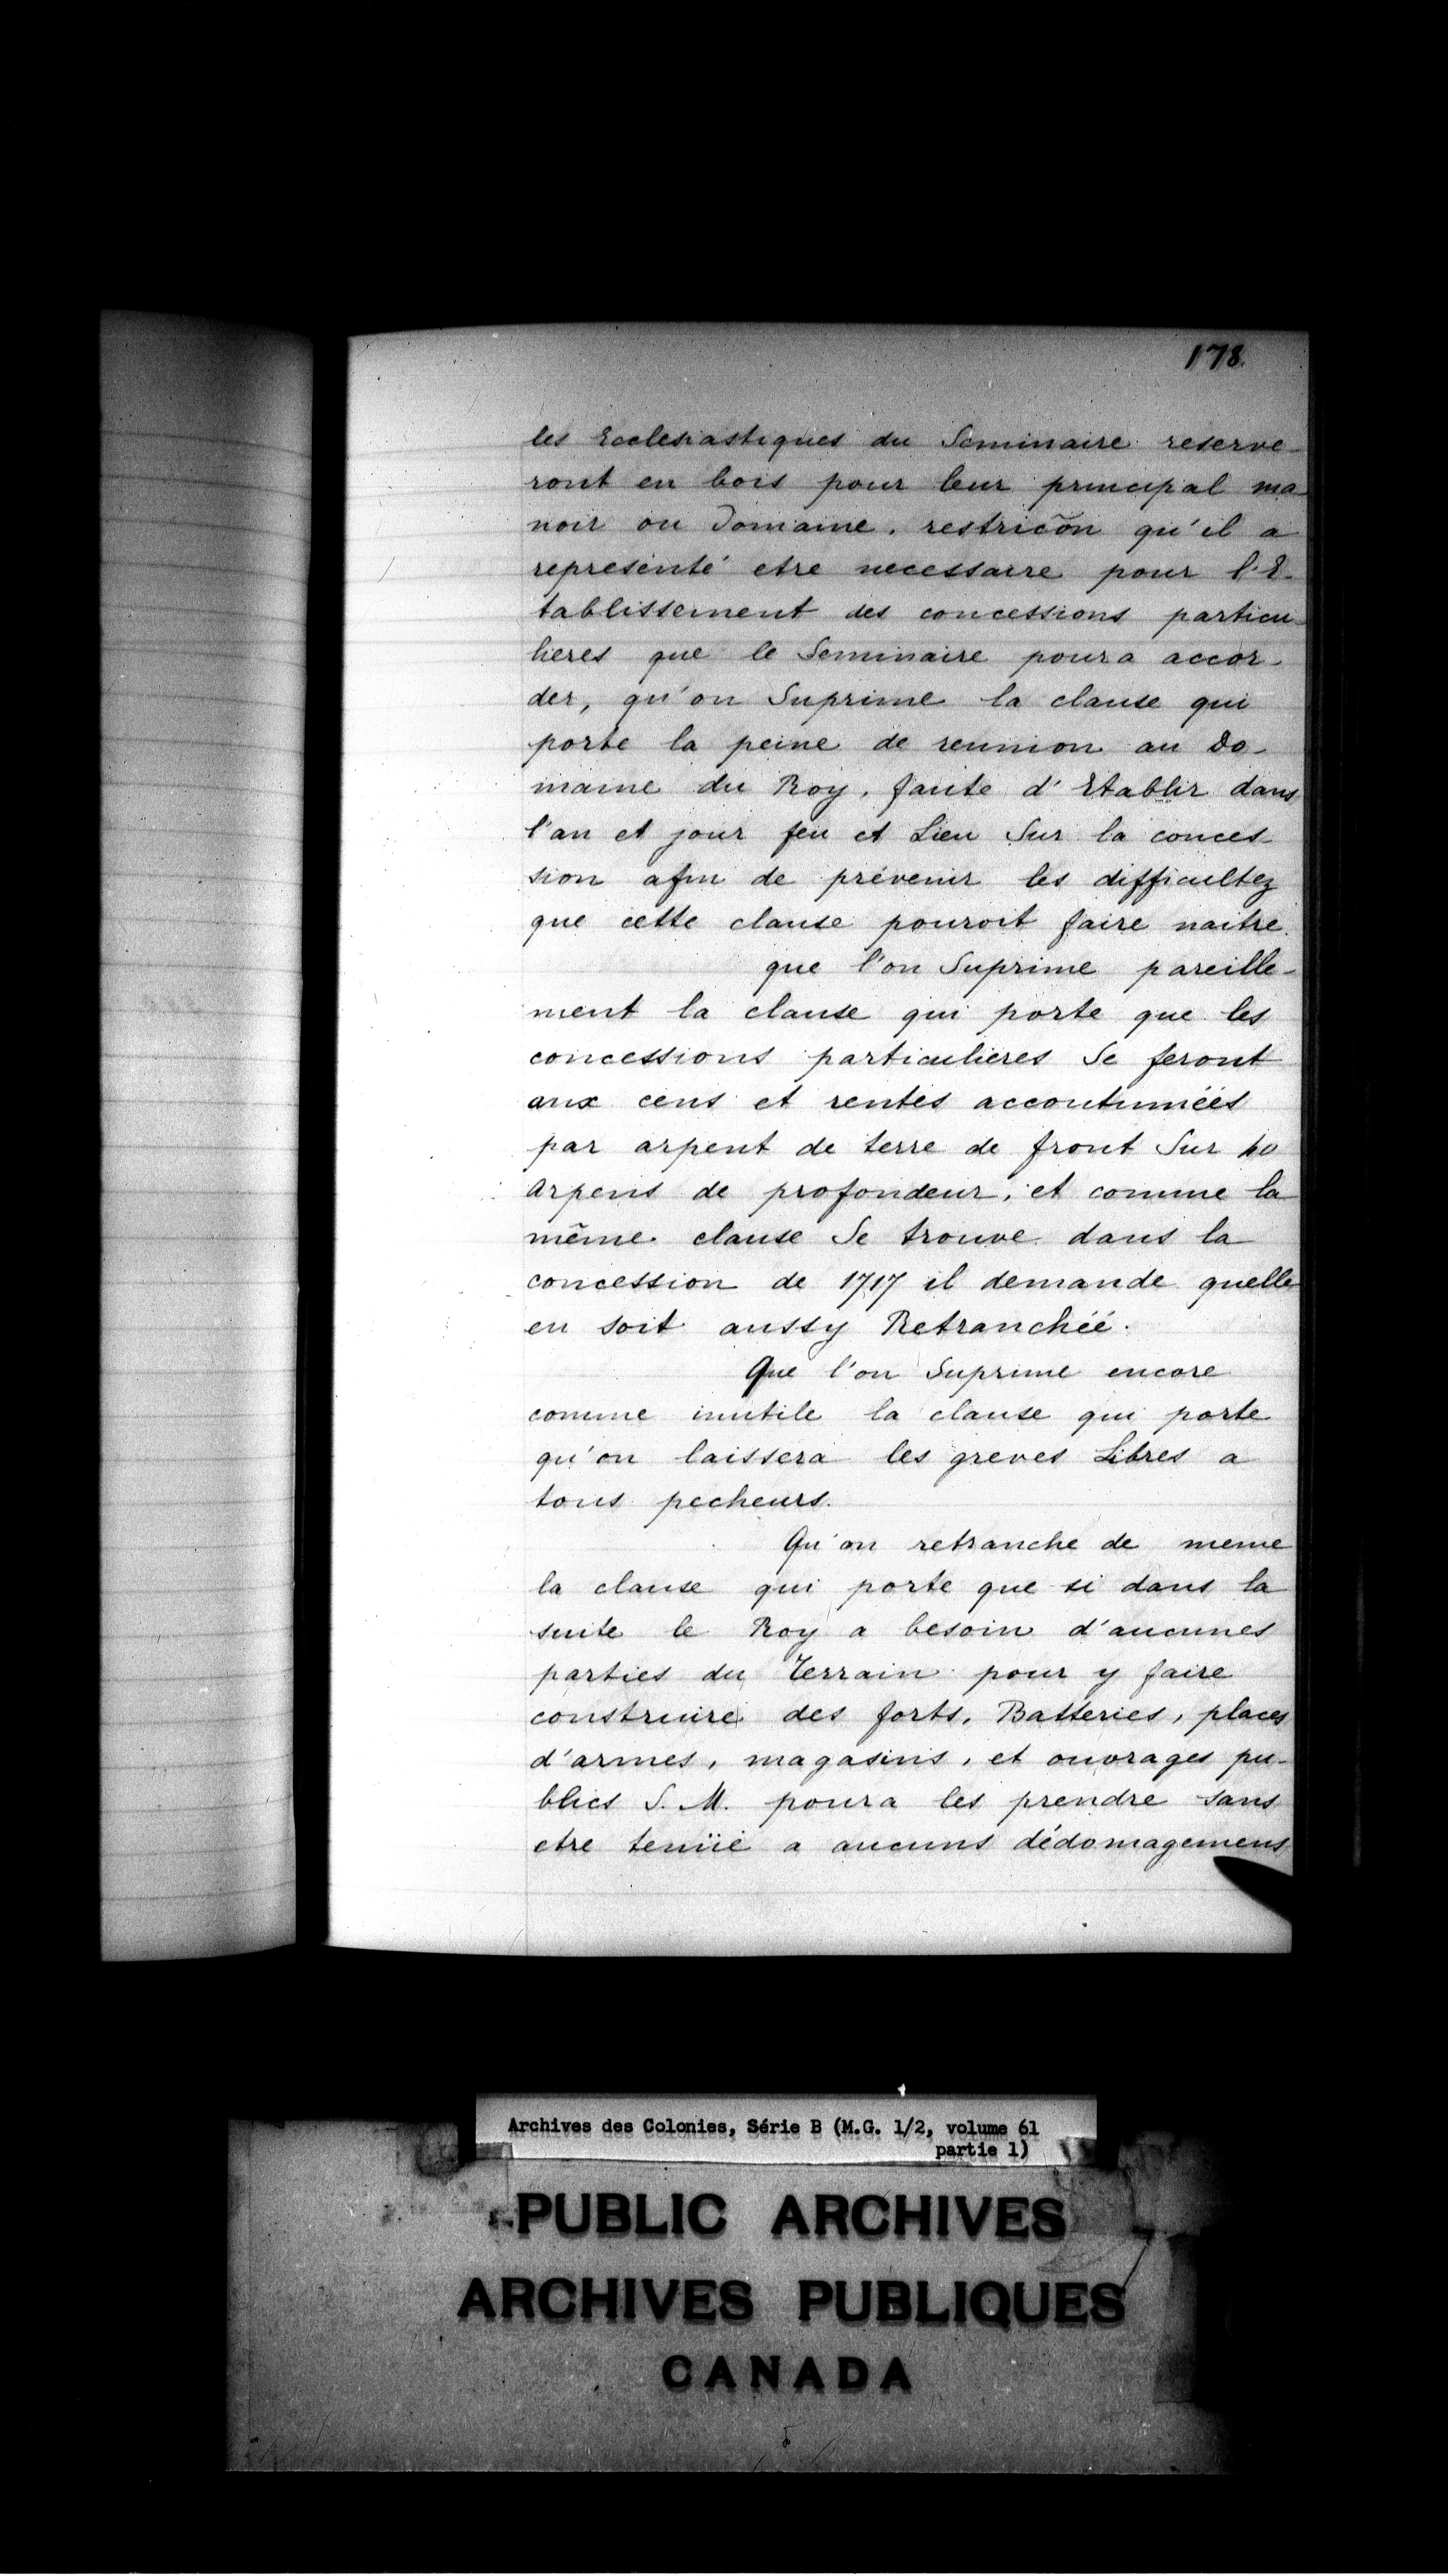 178.
les Ecclesiastiques du Seminaire reserve-
ront en bois pour leur principal ma-
noir ou Domaine. restricõn qu'il a
representé etre necessaire pour l'E-
tablissement des concessions particu-
lieres que le Seminaire poura accor-
der, qu'on Suprime la clause qui
porte la peine de reunion au Do-
maine du Roy, faute d'Etablir dans
l'an et jour feu et Lieu Sur la conces-
sion afin de prévenir les difficultez
que cette clause pouroit faire naitre.
que l'on Suprime pareille-
ment la clause qui porte que les
concessions particulieres Se feront
aux cens et rentes accoutuméés
par arpent de terre de front Sur 40
arpens de profondeur, et comme la
même clause Se trouve dans la
concession de 1717 il demande quelle
en soit aussy Retranchéé.
Que l'on Suprime encore
comme inutile la clause qui porte
qu'on laissera les greves Libres a
tous pecheurs.
Qu'on retranche de meme
la clause qui porte que si dans la
suite le Roy a besoin d'aucunes
parties du Terrain pour y faire
construire des forts, Batteries, places
d'armes, magasins, et ouvrages pu-
blics S. M. poura les prendre sans
etre tenüe a aucuns dédomagemens
Archives des Colonies, Série B (M.G. 1/2, volume 61
partie 1)
PUBLIC ARCHIVES
ARCHIVES PUBLIQUES
CANADA